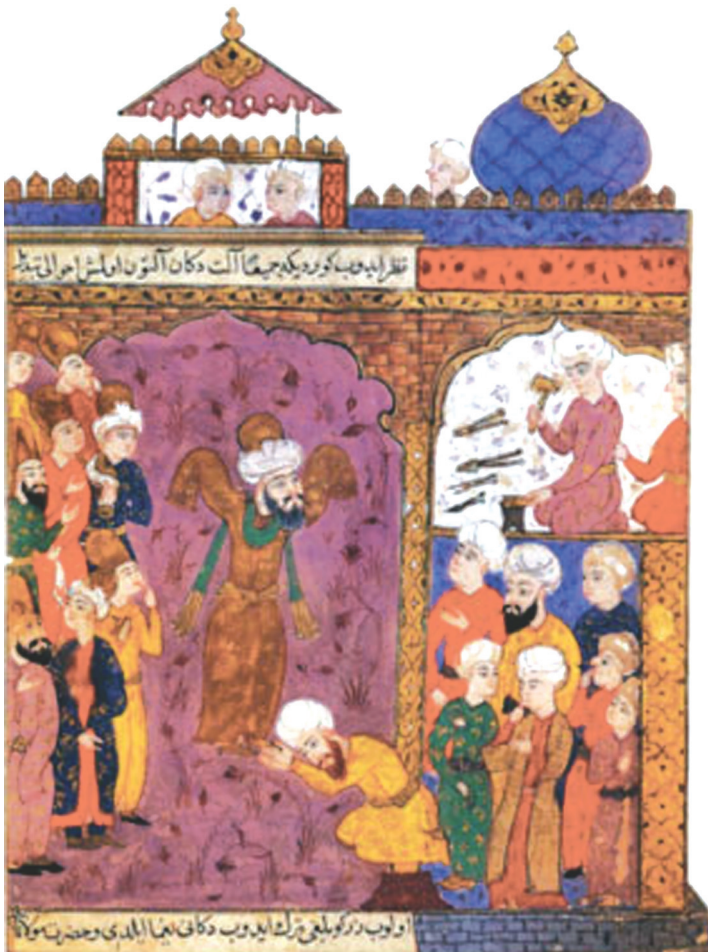 نظر ایدوب کوردیکه جمیعا آلت دکان آلتون اولمش احوالی
اولوب زرکوبلیغی ترک ایدوب دکانی یغما ایلدی و حضرت مولانا